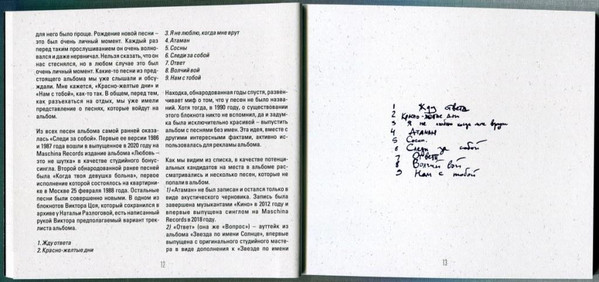 для него было проще. Рождение новой песни –
это был очень личный момент. Каждый раз
перед таким прослушиванием он очень волно-
вался и даже нервничал. Нельзя сказать, что он
нас стеснялся, но в любом случае это был
очень личный момент. Какие-то песни из пред-
стоящего альбома мы уже слышали и обсуж-
дали. Мне кажется, «Красно-желтые дни» и
«Нам с тобой», как-то так. В общем, перед тем,
как разъехаться на отдых, мы уже имели
представление о песнях, которые войдут на
альбом.
Из всех песен альбома самой ранней оказа-
лась «Следи за собой». Первые ее версии 1986
и 1987 года вошли в выпущенное в 2020 году на
Maschina Records издание альбома «Любовь –
это не шутка» в качестве студийного бонус-
сингла. Второй обнародованной ранее песней
была «Когда твоя девушка больна», первое
исполнение которой состоялось на квартирни-
ке в Москве 25 февраля 1988 года. Остальные
песни были совершенно новыми. В одном из
блокнотов Виктора Цоя, который сохранился в
архиве у Натальи Разлоговой, есть написанный
рукой Виктора предполагаемый вариант трек-
листа альбома.
1. Жду ответа
2. Красно-желтые дни
12
3. Я не люблю, когда мне врут
4. Атаман
5. Сосны
6. Следи за собой
7. Ответ
8. Волчий вой
9. Нам с тобой
Находка, обнародованная годы спустя, развен-
чивает миф о том, что у песен не было назва-
ний. Хотя тогда, в 1990 году, о существовании
этого блокнота никто не вспомнил, да и задум-
ка была исключительно красивой – выпустить
альбом с песнями без имен. Эта идея, вместе с
другими интересными фактами, активно ис-
пользовалась для рекламы альбома.
Как мы видим из списка, в качестве потенци-
альных кандидатов на место в альбоме рас-
сматривались и несколько песен, которые не
попали в альбом.
1) «Атаман» не был записан и остался только в
виде акустического черновика. Запись была
завершена музыкантами «Кино» в 2012 году и
впервые выпущена синглом на Maschina
Records в 2018 году.
2) «Ответ» (она же «Вопрос») – ауттейк из
альбома «Звезда по имени Солнце», впервые
выпущена с оригинального студийного масте-
ра в виде дополнения к «Звезде по имени
1 Жду ответа
2 Красно-желтые дни
3 Я не люблю когда мне врут
4 Атаман
5 Сосны
6 Следи за собой
7 Ответ
8 Волчий вой
9 Нам с тобой
13